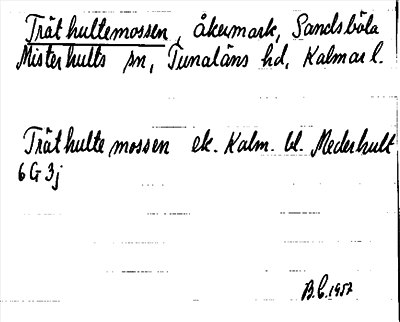 Träthultemossen, åkermark, Sandsböla
Misterhults sn, Tunaläns hd, Kalmar l.
Träthultemossen ek. Kalm. bl. Mederhult
6G3j
B.C. 1957